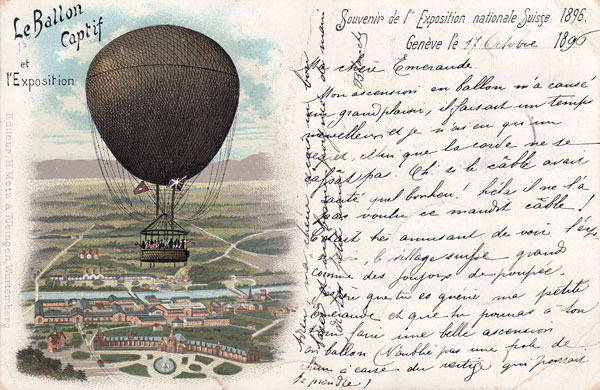 Le Ballon
Captif
et
l'Exposition
Editeur H. Metz à Tübingen, Wurtemberg
Souvenir de l'Exposition nationale Suisse 1896.
Genève le 17 Octobre 1896
Ma chère Emeraude
Mon ascension en ballon m'a causé
un grand plaisir, il faisait un temps
merveilleux et je n'ai eu qu'un
regret, c'est que la corde ne se
cassât pas! Oh! si le câble avait
sauté quel bonheur! hélas il ne l'a
pas voulu ce maudit câble!
C'était très amusant de voir
le village suisse grand
comme des joujoux de poupée.
que tu es guérie ma petite
Emeraude et que tu pourras à ton
tour faire une belle ascension
en ballon (N'oublie pas une fiole de
à cause du vertige qui pourrait
te prendre!